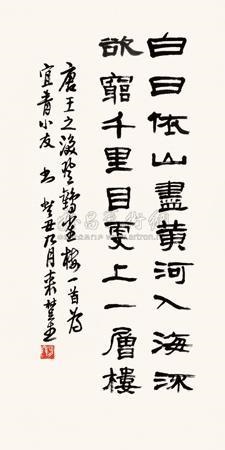 白日依山盡黄河入海流
欲窮千里目更上一層樓
唐王之渙登鸛雀樓一首為
宜青小友 書 癸丑 月來楚生